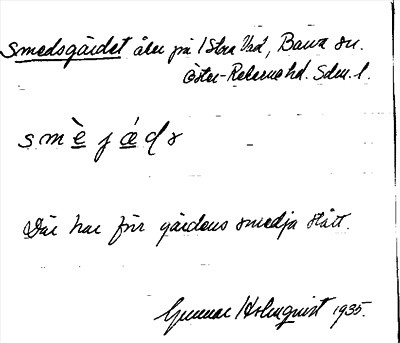 Smedsgärdet åker på Stora Vad, Barva sn.
Öster-Rekarne hd. Sdm. l.
smèjǽdr
Där har förr gårdens smedja stått.
Gunnar Holmquist 1935.